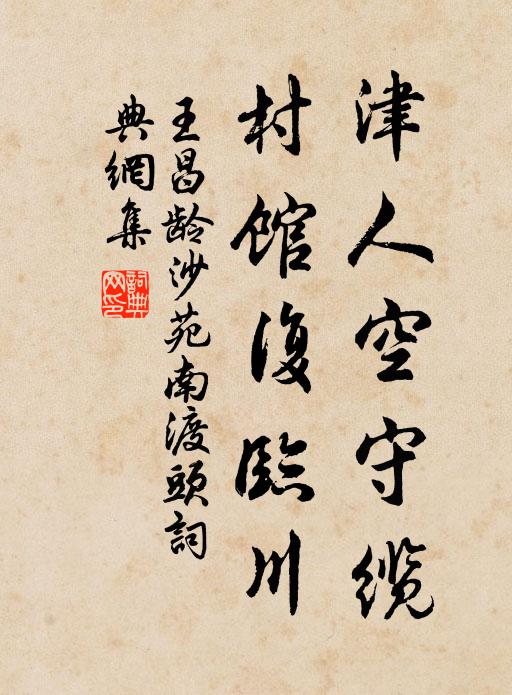 津人空守缆
村馆復臨川
王昌龄沙苑南渡頭詞
典網集
詞典
网印